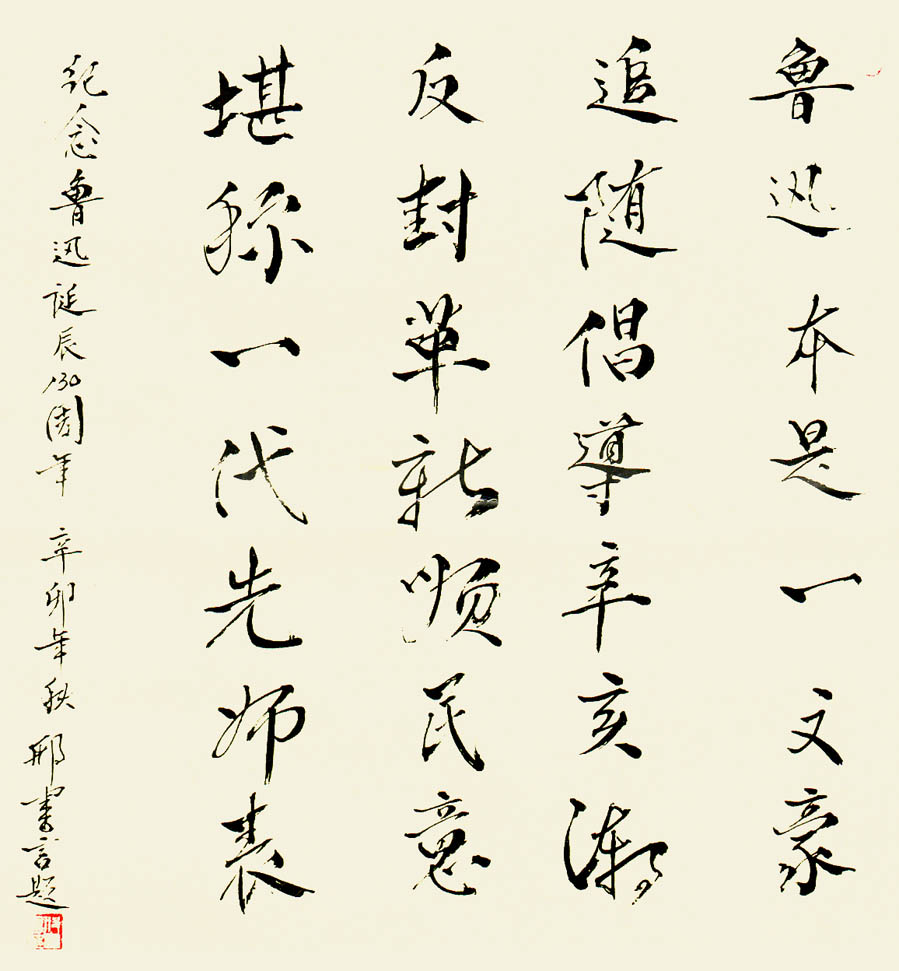 鲁迅本是一文豪
追随倡导辛亥潮
反封革新顺民意
堪称一代先师表
纪念鲁迅诞辰130周年 辛卯年秋 邢书言题